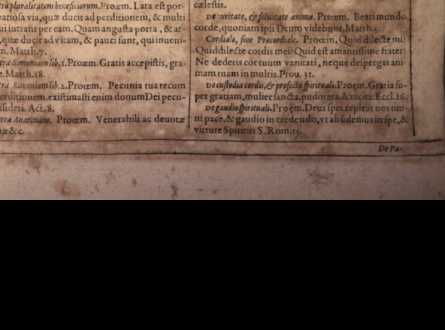 pluralitatem beneficiorum. Proœm. Lata est por-
ratiosa via, quæ ducit ad perditionem, & multi
intrant per eam. Quam angusta porta, & ar-
quæ ducit ad vitam, & pauci sunt, qui inueni-
Matth. 7.
lib. 1. Proœm. Gratis accepistis, gra-
Matth. 18.
lib. 2. Proœm. Pecunia tua tecum
existimasti enim donum Dei pecu-
Act. 8.
Proœm. Venerabili ac deuotæ
&c.
cælestis.
De puritate, & felicitate animæ. Proœm. Beati mundo
corde, quoniam ipsi Deum videbunt. Matth. 5.
Cordiale, siue Præcordiale. Proœm. Quid dilecte mi?
Quid dilecte cordis mei? Quid est amantissime frater?
Ne dederis cor tuum vanitati, neque despergas ani-
mam tuam in multis. Prou. 31.
De custodia cordis, & profectu spirituali. Proœm. Gratia su-
per gratiam, mulier sancta, pudorata, & tacita. Eccl. 26.
De gaudio spirituali. Proœm. Deus spei repleat vos om-
ni pace, & gaudio in credendo, vt abundemus in spe, &
virtute Spiritus S. Rom. 15.
De Pa-